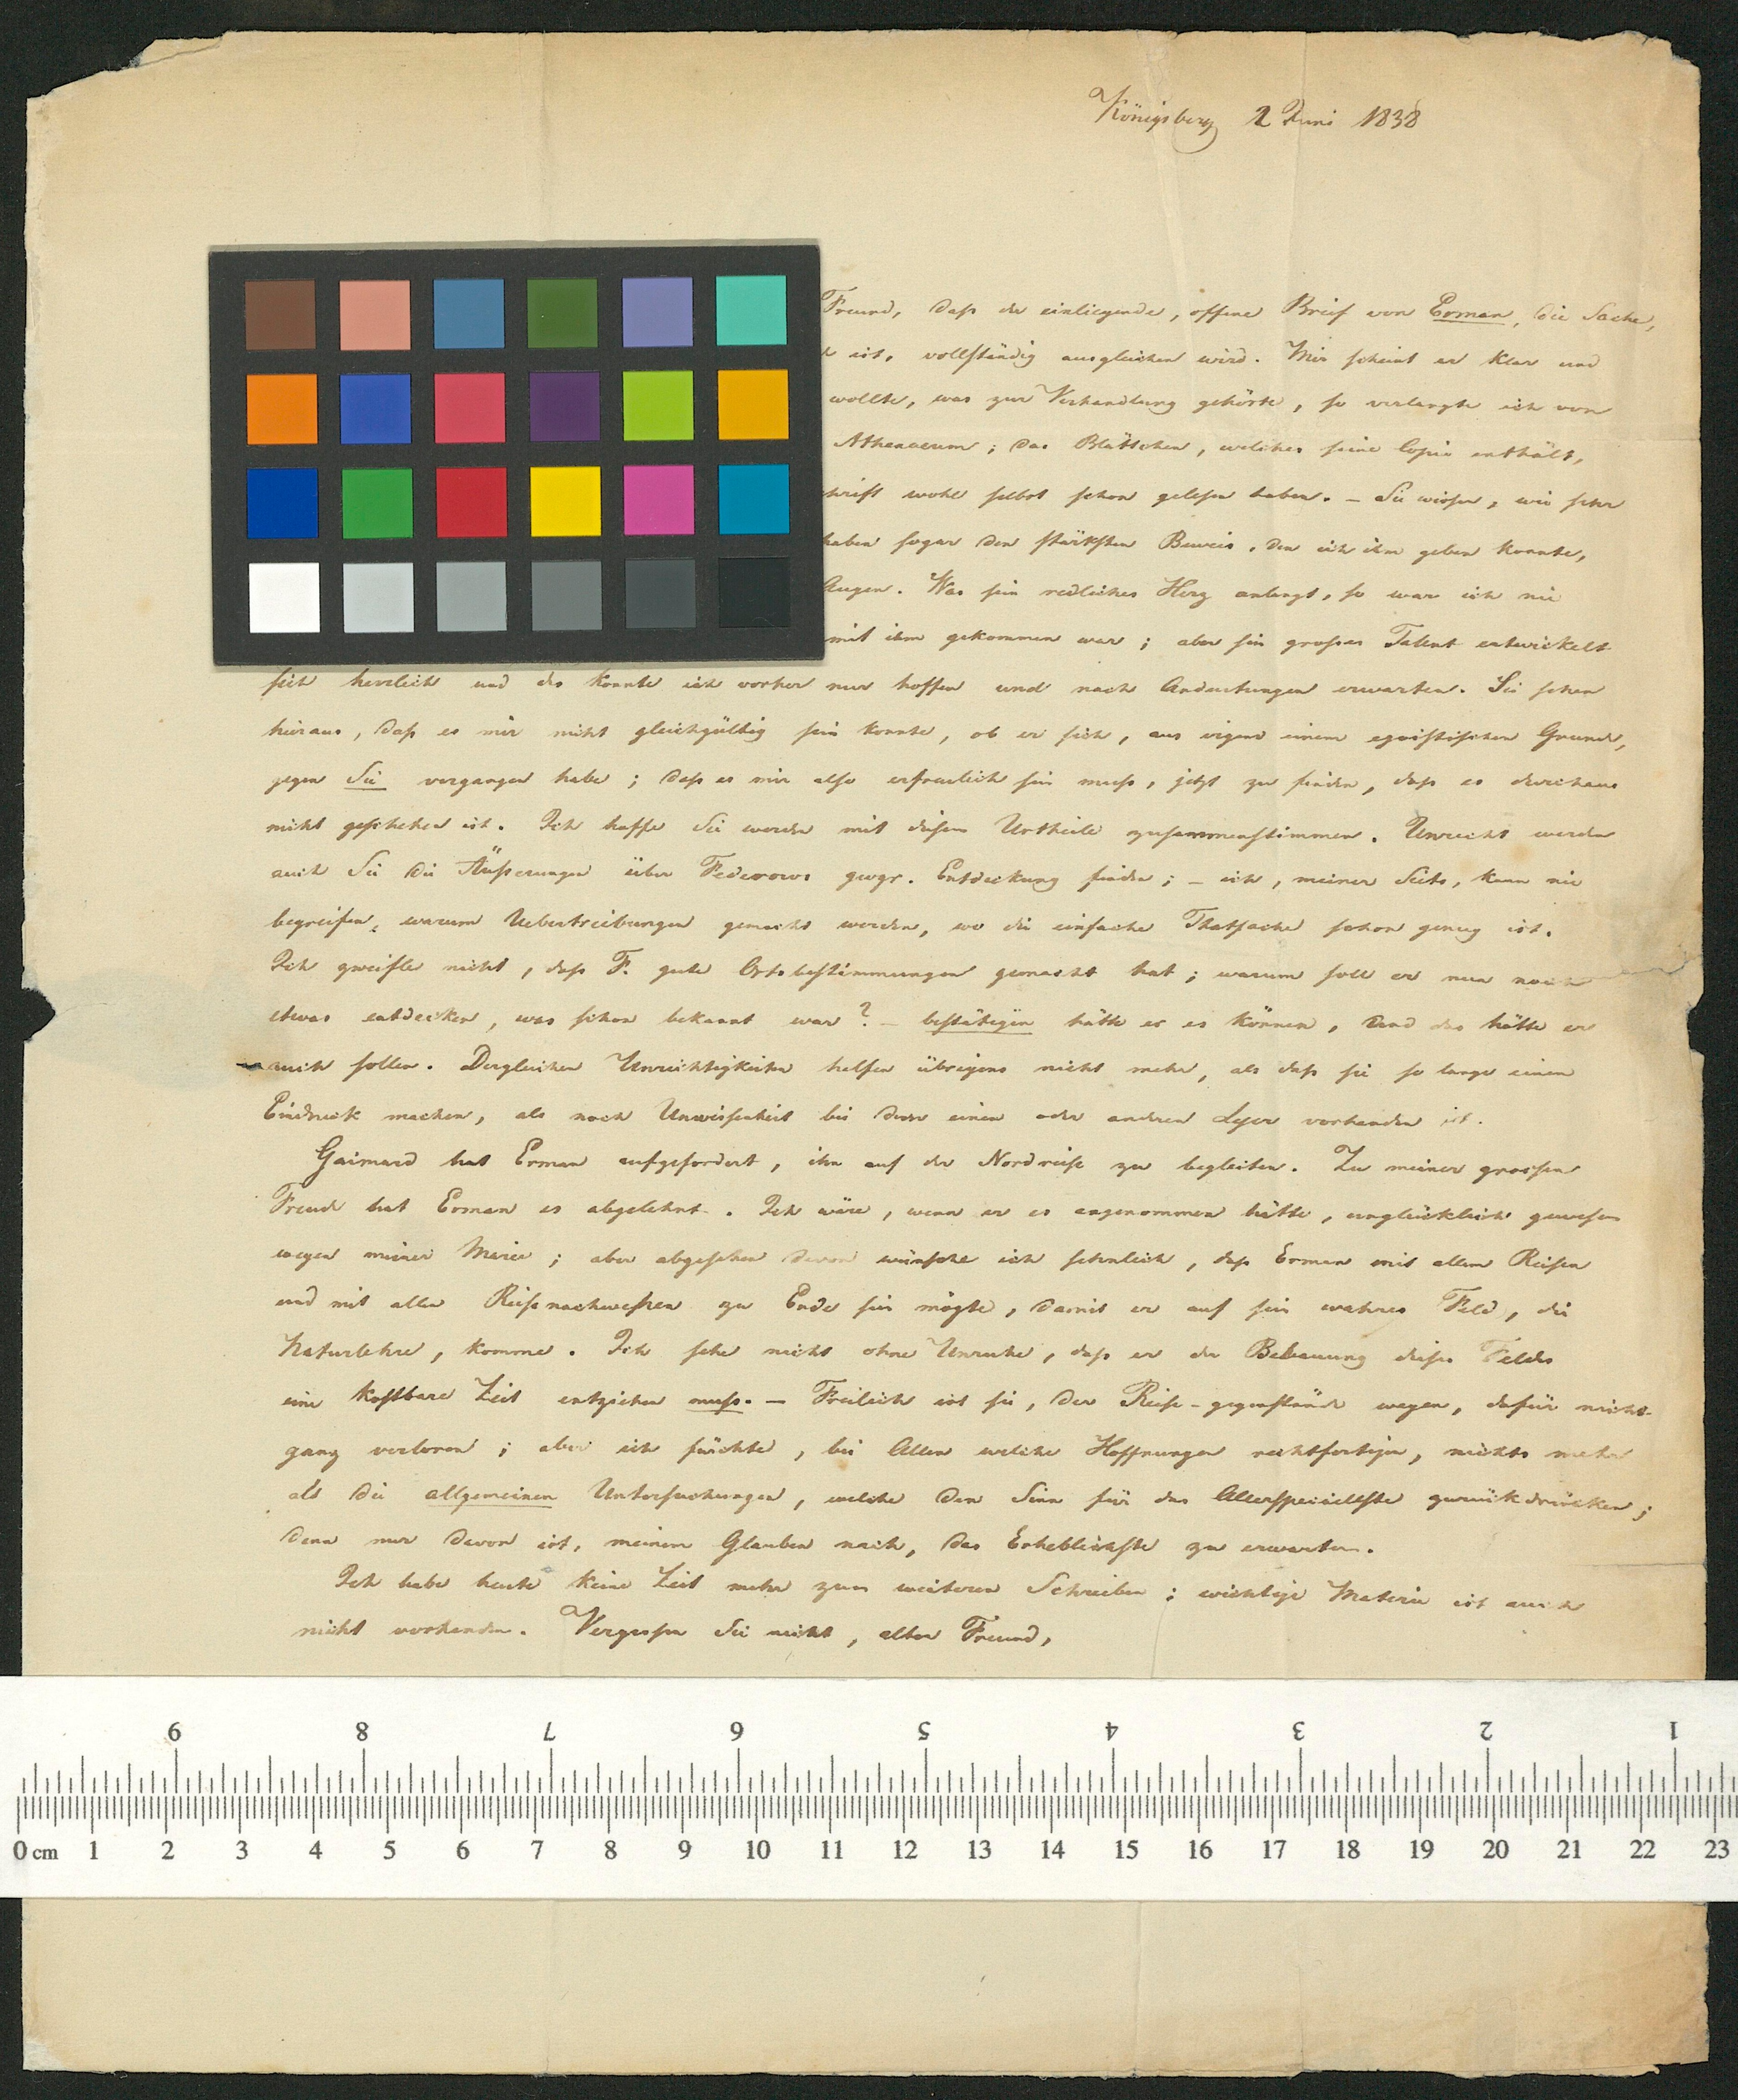 Königsberg 2 Juni 1838
Freund, daß der einliegende, offene Brief von Erman, die Sache,
ist, vollständig ausgleichen wird. Mir scheint er klar und
wollte, was zur Verhandlung gehörte, so verlangte ich von
Athenaeum; das Blättchen, welches seine Copie enthält,
wohl selbst schon gelesen haben. – Sie wissen, wie sehr
haben sogar den stärksten Beweis, den ich ihm geben konnte,
Augen. Was sein redliches Herz anlangt, so war ich nie
mit ihm gekommen war; aber sein großes Talent entwickelt
sich herrlich und das konnte ich vorher nur hoffen und nach Andeutungen erwarten. Sie sehen
hieraus, daß es mir nicht gleichgültig sein konnte, ob er sich, aus irgend einem egoistischen Grunde,
gegen Sie vergangen habe; daß es mir also erfreulich sein muß, jetzt zu finden, daß es durchaus
nicht geschehen ist. Ich hoffe Sie werden mit diesem Urtheile zusammenstimmen. Unrecht werden
auch Sie die Äußerungen über Federows geogr. Entdeckung finden; – ich, meiner Seits, kann nie
begreifen, warum Uebertreibungen gemacht werden, wo die einfache Thatsache schon genug ist.
Ich zweifle nicht, daß F. gute Ortsbestimmungen gemacht hat; warum soll er nun noch
etwas entdecken, was schon bekannt war? – bestätigen hätte er es können, und das hätte er
auch sollen. Dergleichen Unrichtigkeiten helfen übrigens nicht mehr, als daß sie so lange einen
Eindruck machen, als noch Unwissenheit bei dem einen oder anderen Leser vorhanden ist.
Gaimard hat Erman aufgefordert, ihn auf der Nordreise zu begleiten. Zu meiner grossen
Freude hat Erman es abgelehnt. Ich wäre, wenn er es angenommen hätte, unglücklich gewesen
wegen meiner Marie; aber abgesehen davon wünsche ich sehnlich, daß Erman mit allen Reisen
und mit allen Reisenachwehen zu Ende sein mögte, damit er auf sein wahres Feld, die
Naturlehre, komme. Ich sehe nicht ohne Unruhe, daß er der Bebauung dieses Feldes
eine kostbare Zeit entziehen muß. – Freilich ist sie, der Reise-gegenstände wegen, dafür nicht
ganz verloren; aber ich fürchte, bei Allen welche Hoffnungen rechtfertigen, nichts mehr
als die allgemeinen Untersuchungen, welche den Sinn für das Allerspeciellste zurückdrücken;
denn nur davon ist, meinem Glauben nach, das Erheblichste zu erwarten.
Ich habe heute keine Zeit mehr zum weiteren Schreiben; wichtige Materie ist auch
nicht vorhanden. Vergessen Sie nicht, alter Freund,
9 8 7 6 5 4 3 2 1
0 cm 1 2 3 4 5 6 7 8 9 10 11 12 13 14 15 16 17 18 19 20 21 22 23